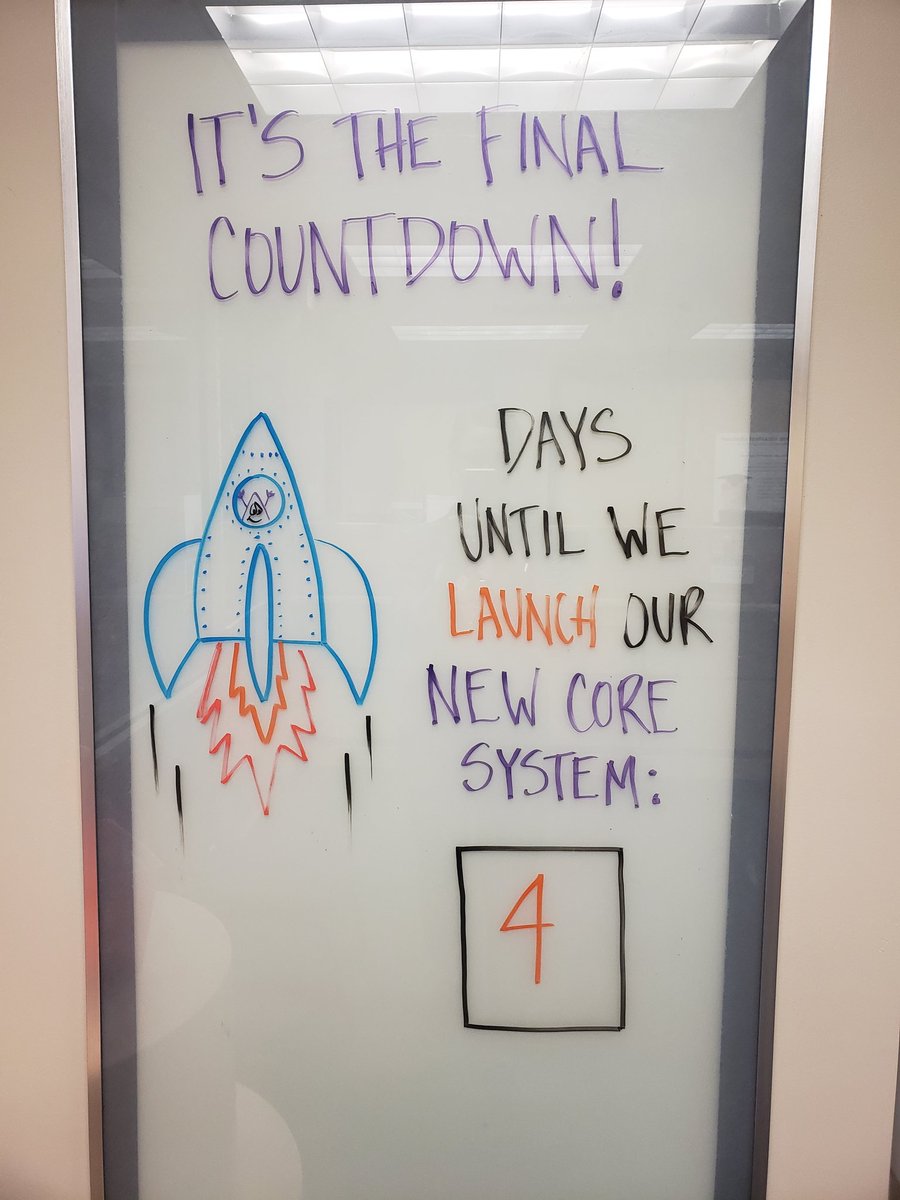 IT'S THE FINAL
COUNTDOWN!
DAYS
UNTIL WE
LAUNCH OUR
NEW CORE
SYSTEM:
4